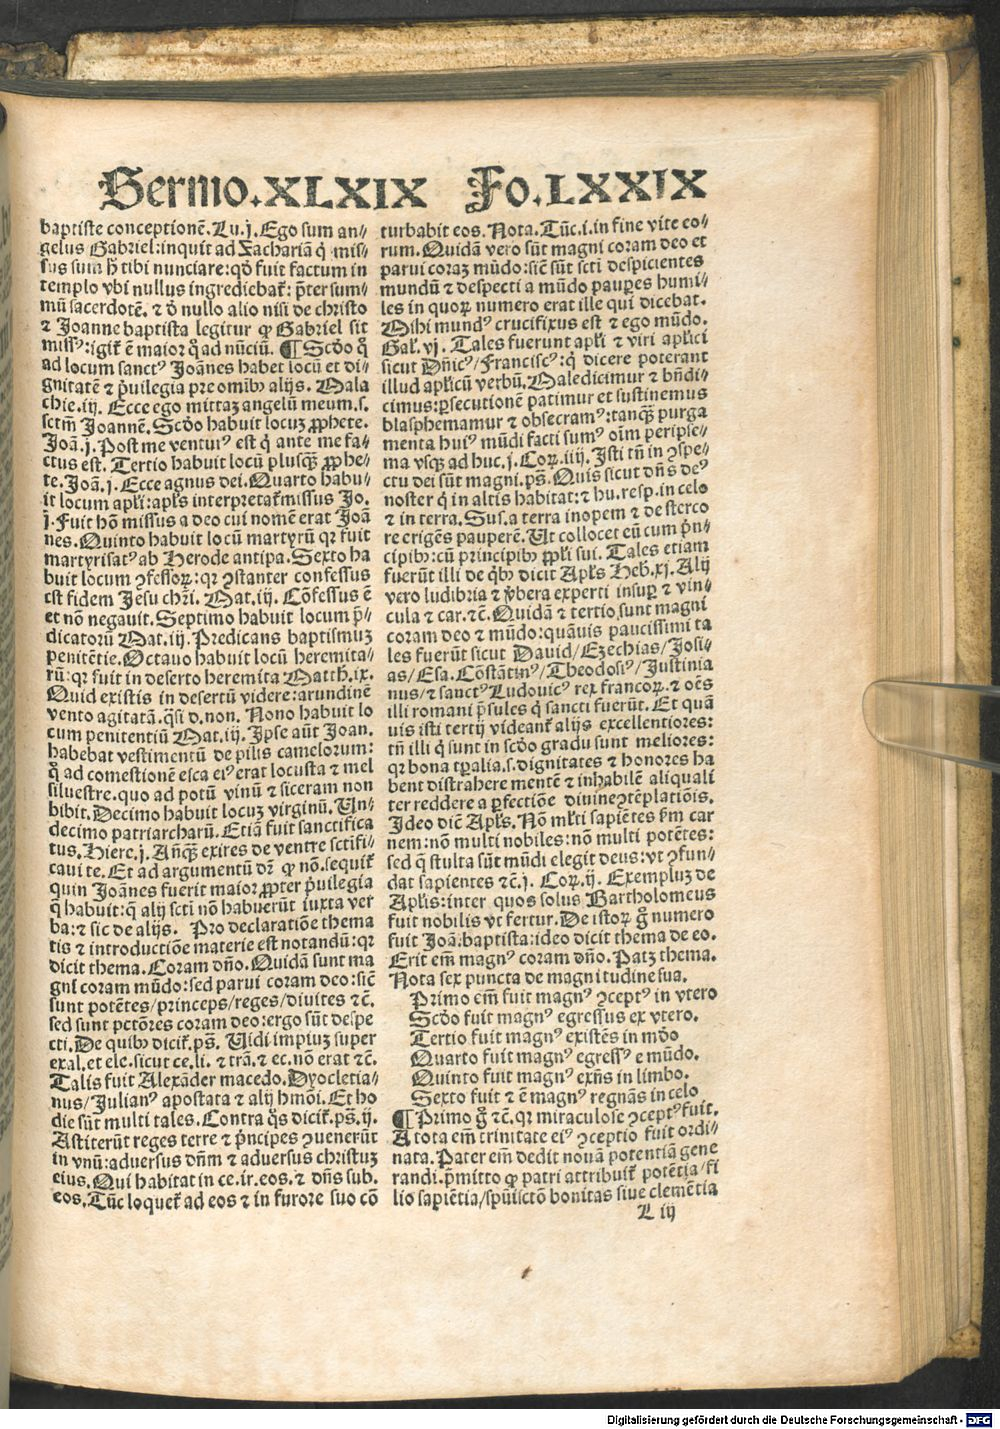 Sermo.XLXIX Fo.LXXIX
baptiste conceptionē. Lu.j. Ego sum an⸗
gelus Gabriel:inquit ad Zachariā q̇ mis⸗
sus sum h̄ tibi nunciare:qđ fuit factum in
templo vbi nullus ingrediebatꝛ: p̄ter sum⸗
mū sacerdotē. ⁊ đ nullo alio nisi de christo
⁊ Joanne baptista legitur ꝙ Gabriel sit
missꝰ:igitꝛ ē maior q̄ ad nūciū. ¶ Scđo q̄
ad locum sanctꝰ Joānes habet locū et di⸗
gnitatē ⁊ p̄uilegia pre omibꝰ alijs. Mala
chie.iij. Ecce ego mittaz angelū meum.s.
sctm̄ Joannē. Scđo habuit locuz ꝓphete.
Joā.j. Post me venturꝰ est q̇ ante me fa⸗
ctus est. Tertio habuit locū plusqꝫ̄ ꝓphe⸗
te. Joā.j. Ecce agnus dei. Quarto habu⸗
it locum apl̄i:apl̄s interpretatꝛ missus Jo.
j. Fuit hō missus a deo cui nomē erat Joā
nes. Quinto habuit locū martyrū qꝛ fuit
martyrisatꝰ ab Herode antipa. Sexto ha
buit locum ꝯfessoꝝ:qꝛ ꝯstanter confessus
est fidem Jesu chr̄i. Mat.iij. Cōfessus ē
et non negauit. Septimo habuit locum p̄⸗
dicatorū Mat.iij. Predicans baptismuz
penitētie. Octauo habuit locū heremita⸗
rū:qꝛ fuit in deserto heremita Matth.ix.
Quid existis in desertū videre:arundinē
vento agitatā.q̄si d.non. Nono habuit lo
cum penitentiū Mat.iij. Ipse aūt Joan.
habebat vestimentū de pilis camelorum:
q̄ ad comestionē esca eiꝰ erat locusta ⁊ mel
siluestre.quo ad potū vinū ⁊ siceram non
bibit. Decimo habuit locuz virginū. Un⸗
decimo patriarcharū. Etiā fuit sanctifica
tus. Hiere.j. Anq̄ꝫ exires de ventre sctīfi⸗
caui te. Et ad argumentū dr̄ ꝙ nō.sequitꝛ
quin Joānes fuerit maior ꝓpter p̄uilegia
q̄ habuit:q̄ alij scti nō habuerūt iuxta ver
ba:⁊ sic de alijs. Pro declaratiōe thema
tis ⁊ introductiōe materie est notandū:qꝛ
dicit thema. Coram dño. Quidā sunt ma
gni coram mūdo:sed parui coram deo:sic̄
sunt potētes/princeps/reges/diuites ⁊c̄.
sed sunt pctōres coram deo:ergo sūt despe
cti. De quibꝰ dicitꝛ.ps̄. Uidi impiuz super
exal.et ele.sicut ce.li. ⁊ trā.⁊ ec.nō erat ⁊c̄.
Talis fuit Alexāder macedo. Dyocletia⸗
nus/Julianꝰ apostata ⁊ alij hmōi. Et ho
die sūt multi tales. Contra q̄s dicitꝛ.ps̄.ij.
Astiterūt reges terre ⁊ p̄ncipes ꝯuenerūt
in vnū:aduersus dn̄m ⁊ aduersus christuz
eius. Qui habitat in ce.ir.eos.⁊ dn̄s sub.
eos. Tūc loquetꝛ ad eos ⁊ in furore suo cō
turbabit eos. Nota. Tūc.i.in fine vite eo⸗
rum. Quidā vero sūt magni coram deo et
parui coraz mūdo:sic̄ sūt scti despicientes
mundū ⁊ despecti a mūdo pauꝑes humi⸗
les in quoꝝ numero erat ille qui dicebat.
Mihi mundꝰ crucifixus est ⁊ ego mūdo.
Gal̄.vj. Tales fuerunt apl̄i ⁊ viri apl̄ici
sicut Dn̄icꝰ/Franciscꝰ:q̇ dicere poterant
illud apl̄icū verbū. Maledicimur ⁊ bn̄di⸗
cimus:ꝑsecutionē patimur et sustinemus
blasphemamur ⁊ obsecramꝰ:tanq̄ꝫ purga
menta huiꝰ mūdi facti sumꝰ oīm peripse⸗
ma vsqꝫ ad huc.j. Coꝝ.iiij. Isti tn̄ in ꝯspe⸗
ctu dei sūt magni.ps̄. Quis sicut dn̄s deꝰ
noster q̇ in altis habitat:⁊ hu.resp.in celo
⁊ in terra. Sus.a terra inopem ⁊ de sterco
re erigēs pauperē. Ut collocet eū cum p̄n⸗
cipibꝰ:cū principibꝰ ꝓpl̄i sui. Tales etiam
fuerūt illi de q̇bꝰ dicit Apl̄s Heb̄.xj. Alij
vero ludibria ⁊ v̄bera experti insuꝑ ⁊ vin⸗
cula ⁊ car.⁊c̄. Quidā ⁊ tertio sunt magni
coram deo ⁊ mūdo:quāuis paucissimi ta
les fuerūt sicut Dauid/Ezechias/Josi⸗
as/Esa. Cōstātinꝰ/Theodosiꝰ/Justinia
nus/⁊ sanctꝰ Ludouicꝰ rex francoꝝ.⁊ oēs
illi romani p̄sules q̇ sancti fuerūt. Et quā
uis isti tertij videantꝛ alijs excellentiores:
tn̄ illi q̇ sunt in scđo gradu sunt meliores:
qꝛ bona tꝑalia.s.dignitates ⁊ honores ha
bent distrahere mentē ⁊ inhabilē aliquali
ter reddere a ꝑfectiōe diuine ꝯtēplatiōis.
Ideo dic̄ Apl̄s. Nō ml̄ti sapiētes s̄m car
nem:nō multi nobiles:nō multi potētes:
sed q̄ stulta sūt mūdi elegit deus:vt ꝯfun⸗
dat sapientes ⁊c̄.j. Coꝝ.ij. Exempluz de
Apl̄is:inter quos solus Bartholomeus
fuit nobilis vt fertur. De istoꝝ g̊ numero
fuit Joā.baptista:ideo dicit thema de eo.
Erit em̄ magnꝰ coram dño. Patꝫ thema.
Nota sex puncta de magnitudine sua.
Primo em̄ fuit magnꝰ ꝯceptꝰ in vtero
Scđo fuit magnꝰ egressus ex vtero.
Tertio fuit magnꝰ existēs in mđo
Quarto fuit magnꝰ egressꝰ e mūdo.
Quinto fuit magnꝰ exn̄s in limbo.
Sexto fuit ⁊ ē magnꝰ regnās in celo
¶ Primo g̊ ⁊c̄. qꝛ miraculose ꝯceptꝰ fuit.
A tota em̄ trinitate eiꝰ ꝯceptio fuit ordi⸗
nata. Pater em̄ dedit nouā potentiā gene
randi.p̄mitto ꝙ patri attribuitꝛ potētia/fi
lio sapiētia/spūisctō bonitas siue clemētia
L iij
Digitalisierung gefördert durch die Deutsche Forschungsgemeinschaft - DFG